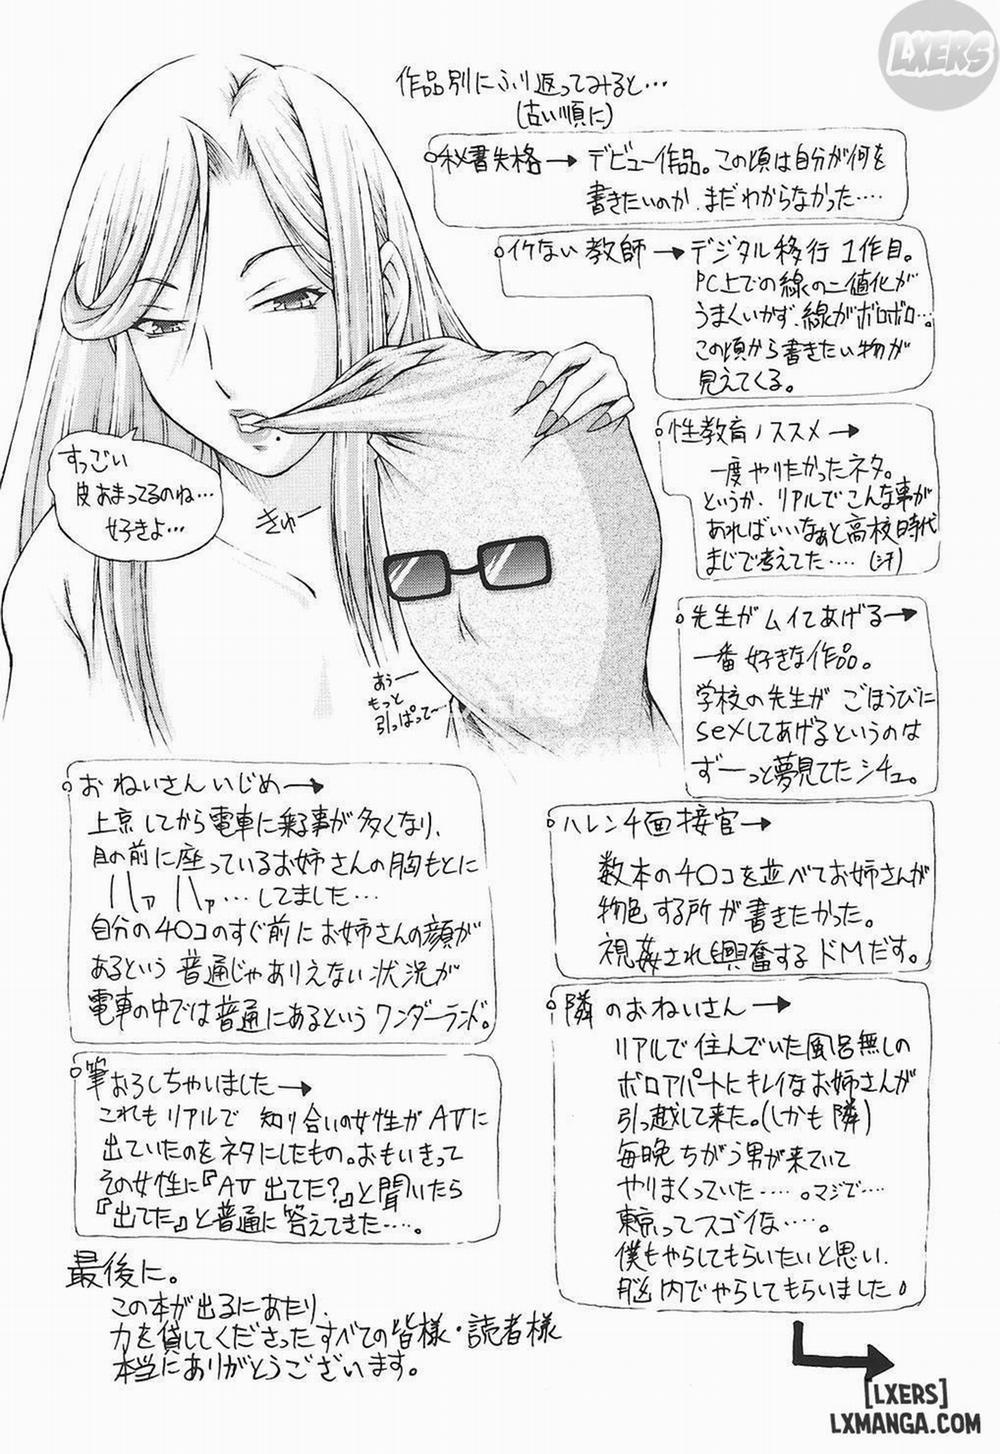 LXERS
作品別にふり返ってみると…
(古い順に)
秘書失格→デビュー作品。この頃は自分が何を
書きたいのか、まだわからなかった‥‥
イケない教師→デジタル移行1作目。
PC上での線の二値化が
うまくいかず、線がボロボロ…。
この頃から書きたい物が
見えてくる。
性教育ノススメ→
一度やりたかったネタ。
というか、リアルでこんな事が
あればいいなぁと高校時代
まじで考えてた‥‥(汗)
先生がムイてあげる→
一番好きな作品。
学校の先生がごほうびに
sexしてあげるというのは
ずーっと夢見てたシチュ。
すっごい
皮あまってるのね…
好きよ…
きゅー
あぅー
もっと
引っぱって〜
ハレンチ面接官→
数本のチ○コを並べてお姉さんが
物色する所が書きたかった。
視姦され興奮するドMだす。
隣のおねいさん→
リアルで住んでいた風呂無しの
ボロアパートにキレイなお姉さんが
引っ越して来た。(しかも隣)
毎晩ちがう男が来ていて
やりまくっていた‥‥。マジで‥‥
東京ってスゴイな‥‥。
僕もやらしてもらいたいと思い、
脳内でやらしてもらいました。
おねいさんいじめ→
上京してから電車に乗る事が多くなり、
目の前に座っているお姉さんの胸もとに
ハァハァ…してました…
自分のチ○コのすぐ前にお姉さんの顔が
あるという普通じゃありえない状況が
電車の中では普通にあるというワンダーランド。
筆おろしちゃいました→
これもリアルで知り合いの女性がAVに
出ていたのをネタにしたもの。おもいきって
その女性に『AV出てた?』と聞いたら
『出てた』と普通に答えてきた‥‥。
最後に。
この本が出るにあたり、
力を貸してくださったすべての皆様・読者様
本当にありがとうございます。
[LXERS]
LXMANGA.COM